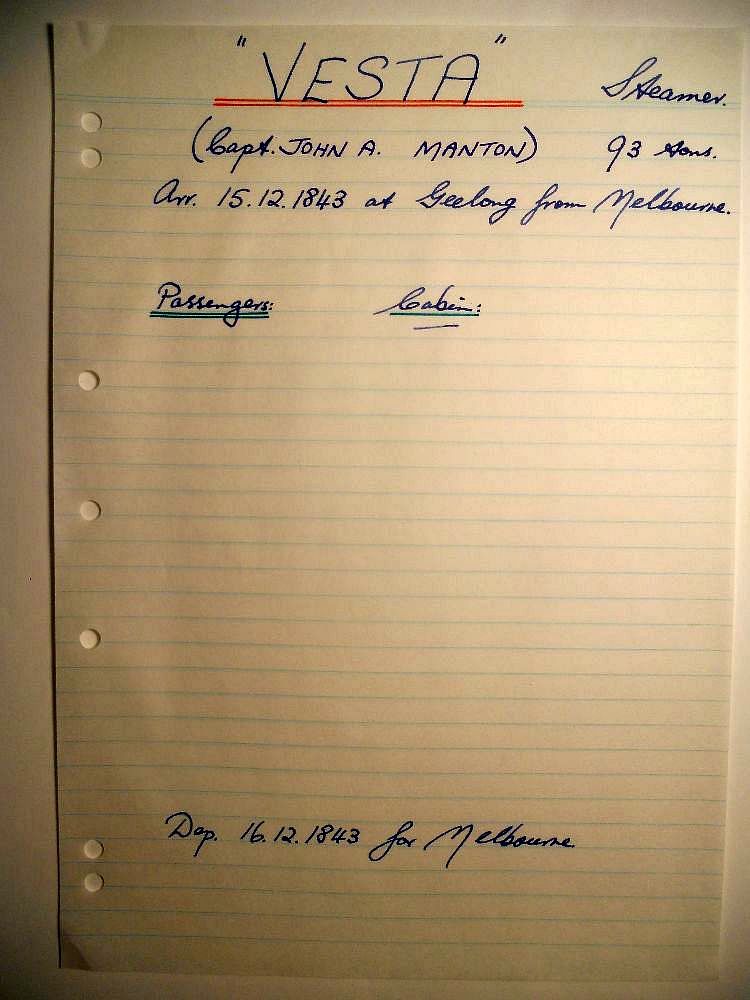 "VESTA" Steamer.
(Capt. JOHN A. MANTON) 93 tons.
Arr. 15.12.1843 at Geelong from Melbourne.
Passengers: Cabin:
Dep. 16.12.1843 for Melbourne